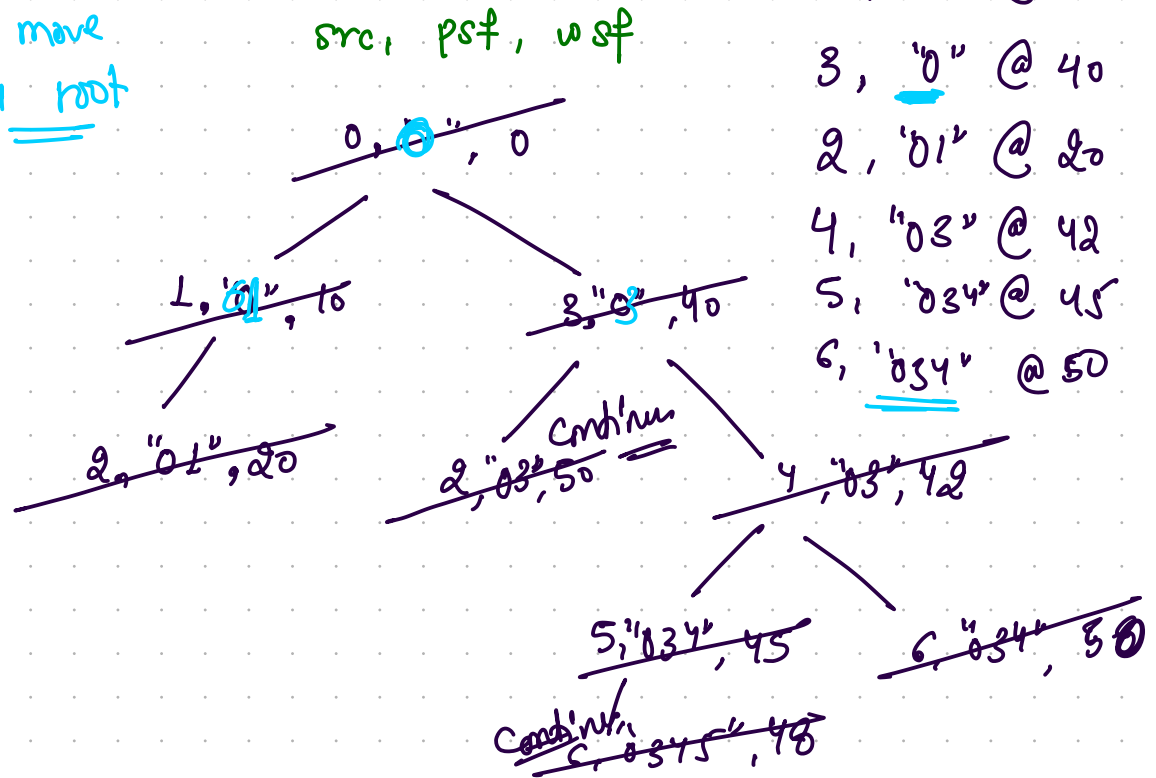 move
root
src, psf, wsf
0, "0", 0
1, "01", 10
3, "03", 40
2, "01", 20
2, "03", 50
continue
4, "03", 42
5, "034", 45
6, "034", 50
continue
6, 0345", 48
3, "0" @ 40
2, "01" @ 20
4, "03" @ 42
5, "034" @ 45
6, "034" @ 50